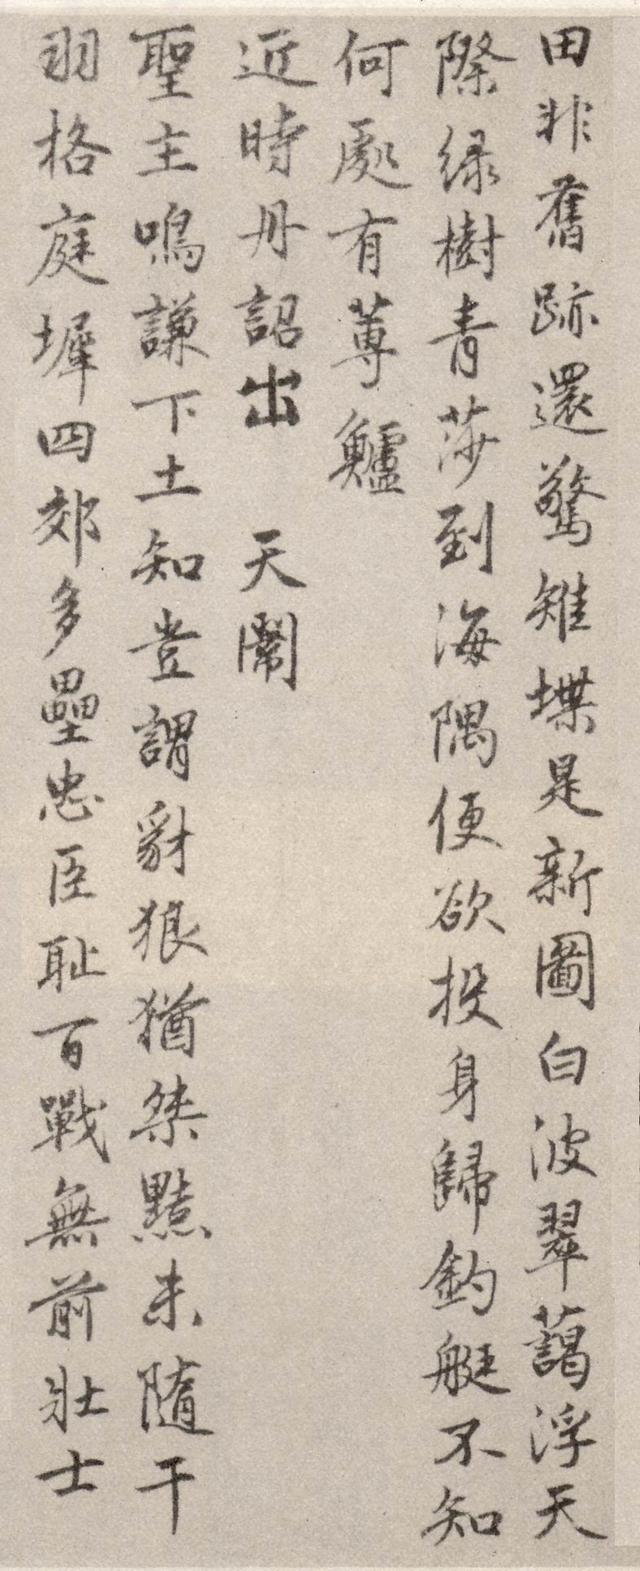 田非舊跡還驚雉堞是新圖白波翠藹浮天
際綠樹青莎到海隅便欲投身歸釣艇不知
何處有蓴鱸
近時丹詔出　天閽
聖主鳴謙下土知豈謂豺狼猶桀黠未隨干
羽格庭墀四郊多壘忠臣恥百戰無前壯士